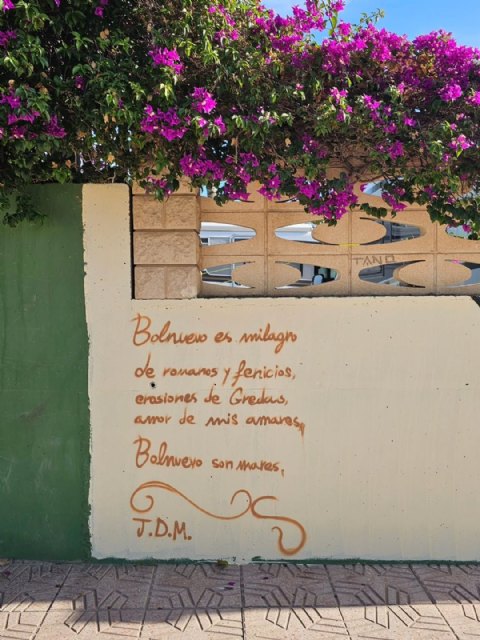 TANO
Bolnuevo es milagro
de romanos y fenicios,
erosiones de Gredas,
amor de mis amares,
Bolnuevo son mares,
J.D.M.